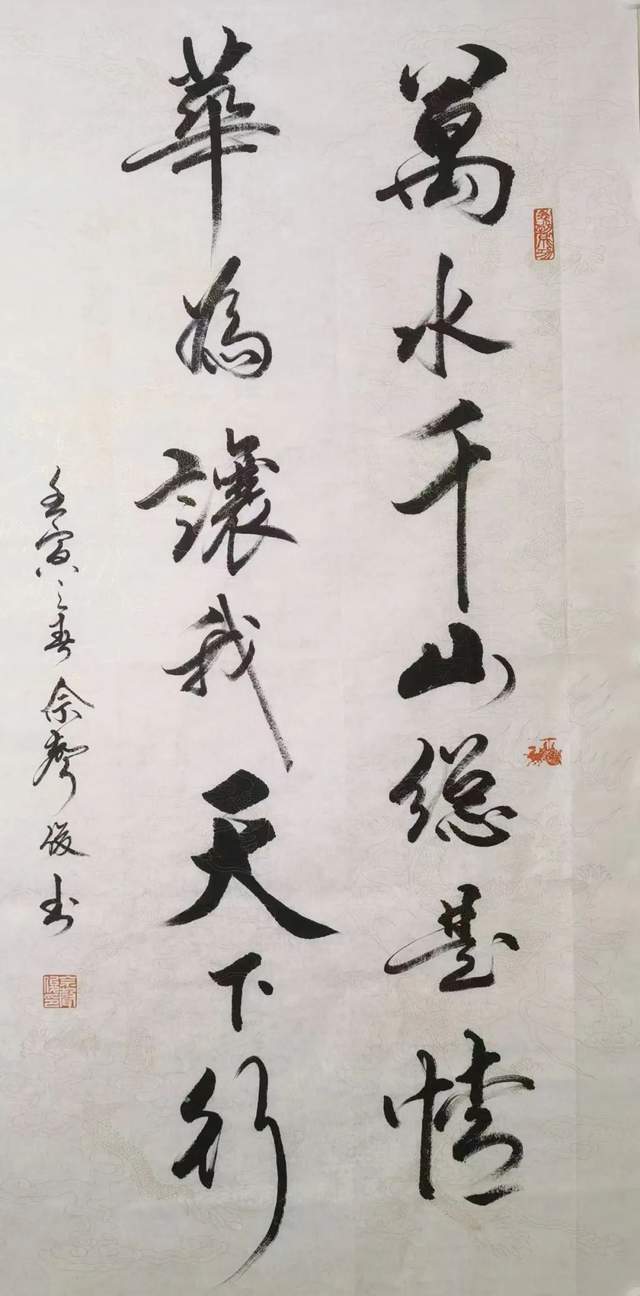 萬水千山總是情
華為讓我天下行
壬寅之春 佘慶俊書